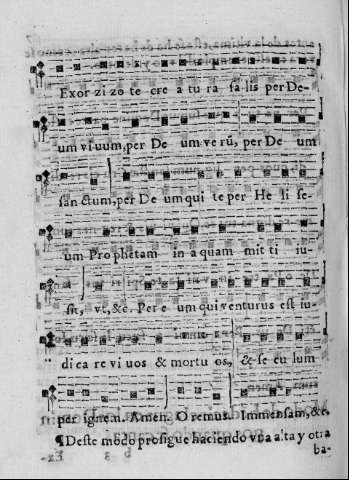 Exor zi zo te cre a tu ra sa lis per De-
um vi uum, per De um ve rũ, per De um
san ctum, per De um qui te per He li se-
um Pro phetam in a quam mit ti iu-
sit, vt, &c. Per e um qui venturus est iu-
di ca re vi uos & mortu os, & se cu lum
per ignem. Amen. O remus. Immensam, &c.
¶Deste modo prosigue haciendo vna alta y otra
ba-